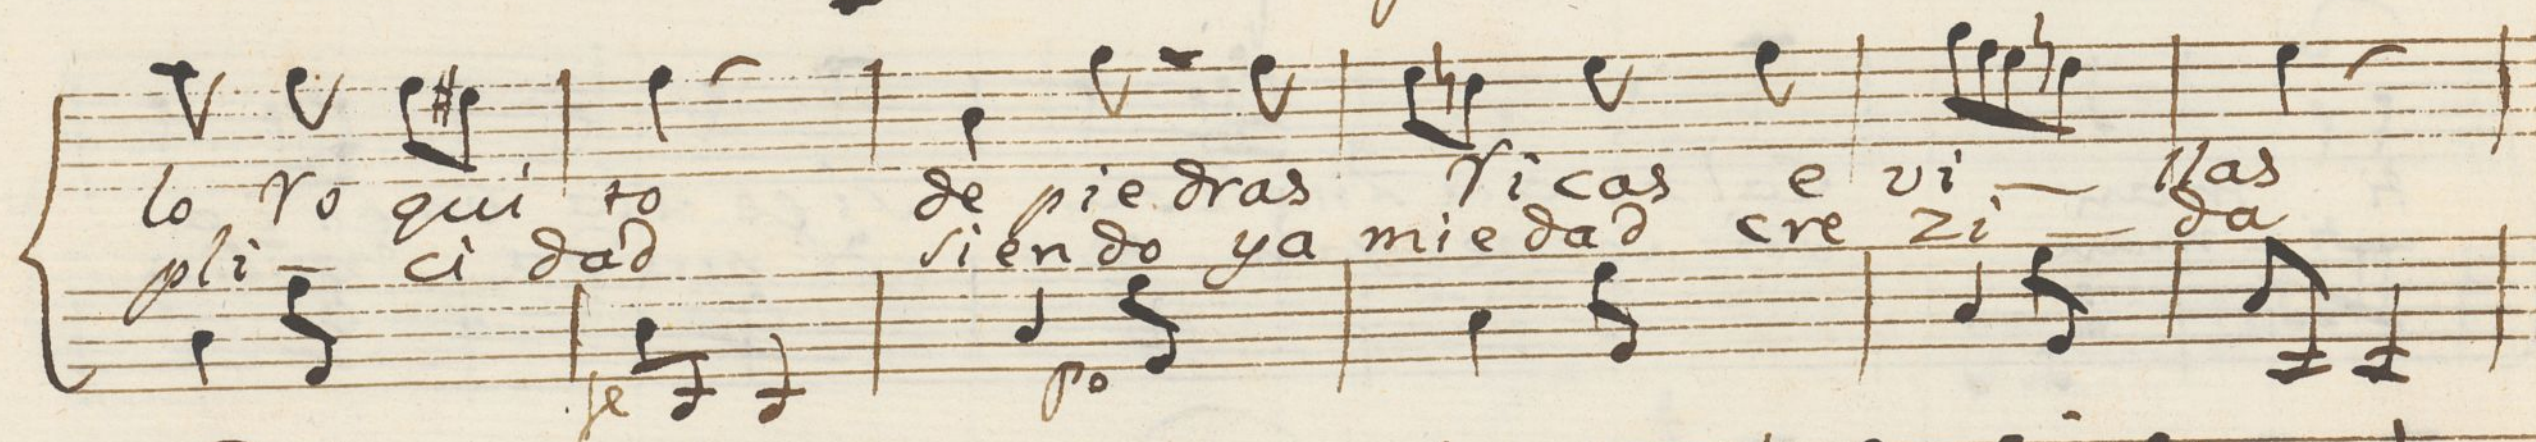 lo ro qui to de pie dras ricas e vi — llas
pli — ci dad sien do ya mie dad cre zi — da
fe po